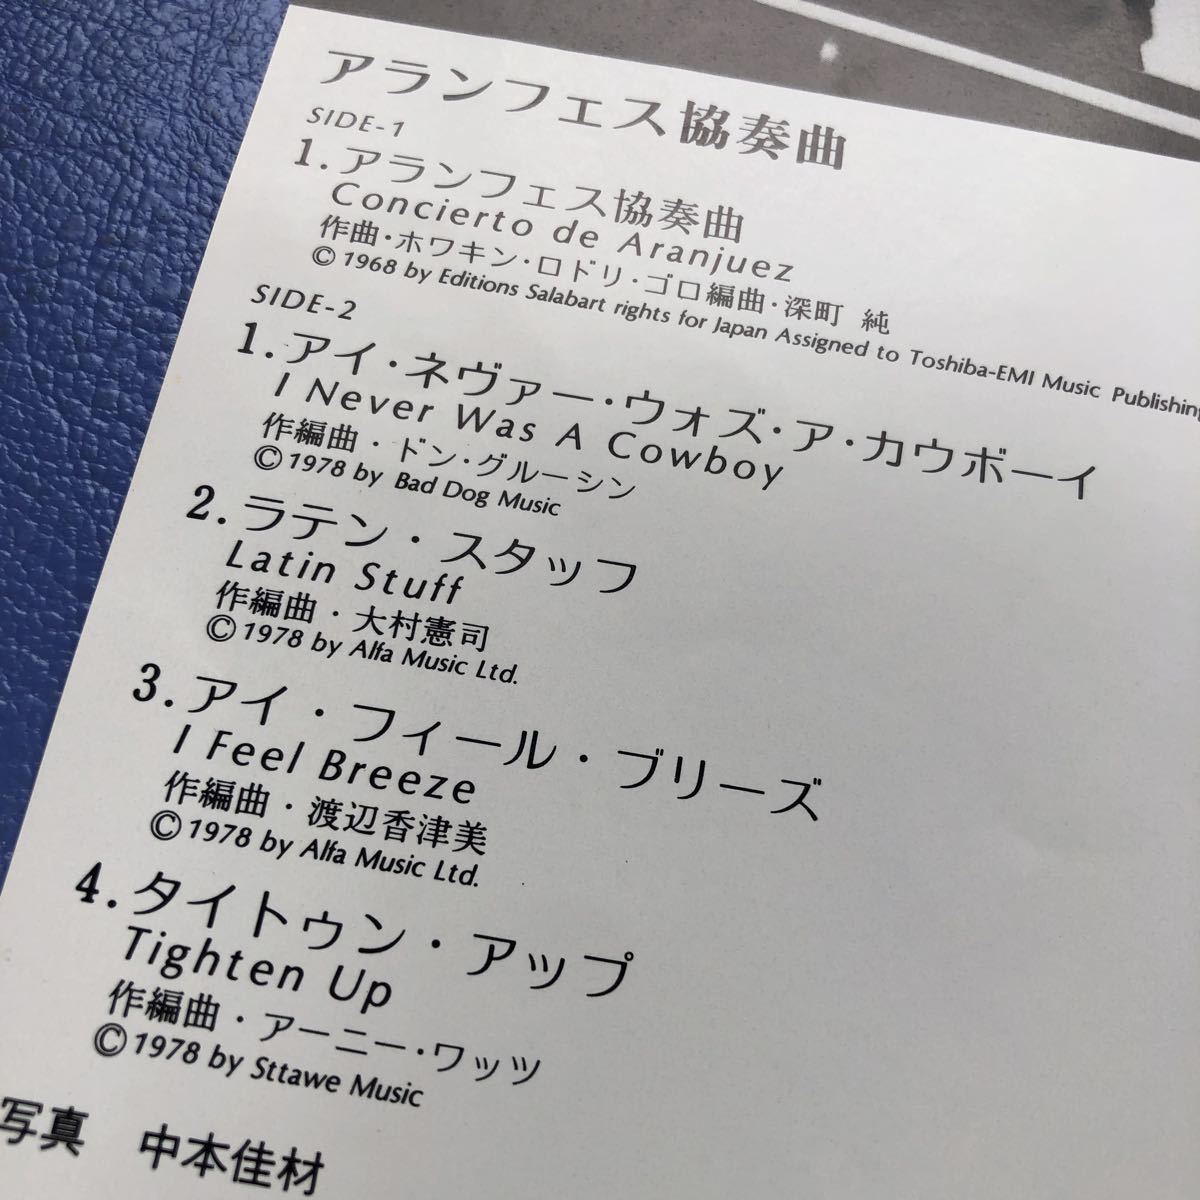 アランフェス協奏曲
SIDE-1
1.アランフェス協奏曲
Concierto de Aranjuez
作曲・ホワキン・ロドリ・ゴロ編曲・深町 純
© 1968 by Editions Salabart rights for Japan Assigned to Toshiba-EMI Music Publishing
SIDE-2
1.アイ・ネヴァー・ウォズ・ア・カウボーイ
I Never Was A Cowboy
作編曲・ドン・グルーシン
© 1978 by Bad Dog Music
2.ラテン・スタッフ
Latin Stuff
作編曲・大村憲司
© 1978 by Alfa Music Ltd.
3.アイ・フィール・ブリーズ
I Feel Breeze
作編曲・渡辺香津美
© 1978 by Alfa Music Ltd.
4.タイトゥン・アップ
Tighten Up
作編曲・アーニー・ワッツ
© 1978 by Sttawe Music
写真 中本佳材